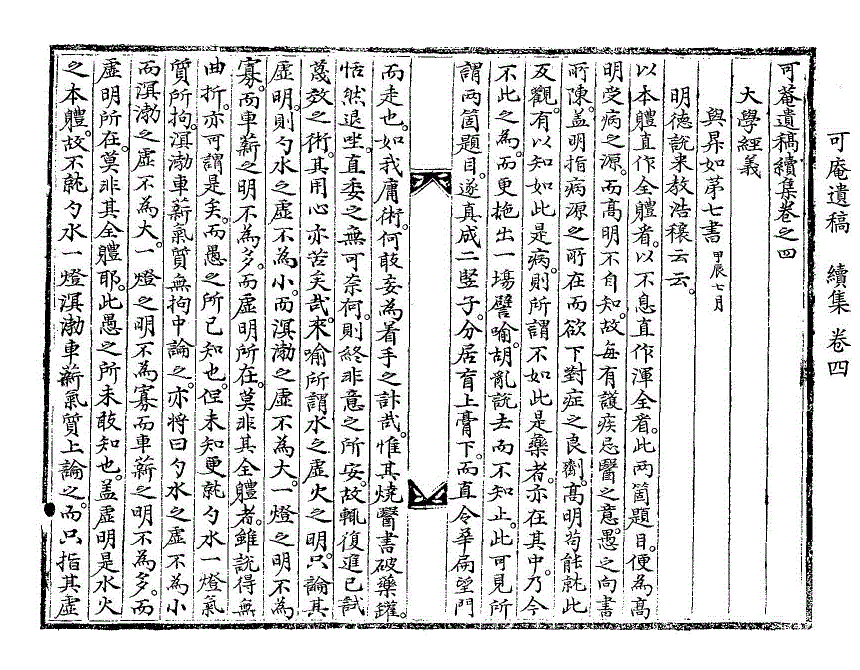 可庵遺稿 續集 卷四
可菴遺稿續集卷之四
大學經義
與昇如第七書 甲辰七月
明德說来教浩穰云云。
以本體直作全體者。以不息直作渾全者。此兩箇題目。便為高
明受病之源。而高明不自知。故每有護疾忌醫之意。愚之向書
所陳。盖明指病源之所在而欲下對症之良劑。高明苟能就此
反觀。有以知如此是病。則所謂不如此是藥者。亦在其中。乃今
不此之為。而更拖出一塲譬喩。胡亂說去而不知止。此可見所
謂兩箇題目。遂真成二竪子。分居肓上膏下。而直令華扁望門
而走也。如我庸術。何敢妄為着手之計哉。惟其燒醫書破藥鑵。
恬然退坐。直委之無可奈何。則終非意之所安。故輒復進已試
蔑效之術。其用心亦苦矣哉。来喩所謂水之虛火之明。只論其
虛明。則勺水之虛不為小。而溟渤之虛不為大。一燈之明不為
寡。而車薪之明不為多。而虛明所在。莫非其全體者。雖說得無
曲折。亦可謂是矣。而愚之所已知也。但未知更就勺水一燈氣
質所拘。溟渤車薪氣質無拘中論之。亦將曰勺水之虛不為小
而溟渤之虛不為大。一燈之明不為寡而車薪之明不為多。而
虛明所在。莫非其全體耶。此愚之所未敢知也。盖虛明是水火
之本體。故不就勺水一燈溟渤車薪氣質上論之。而只指其虛